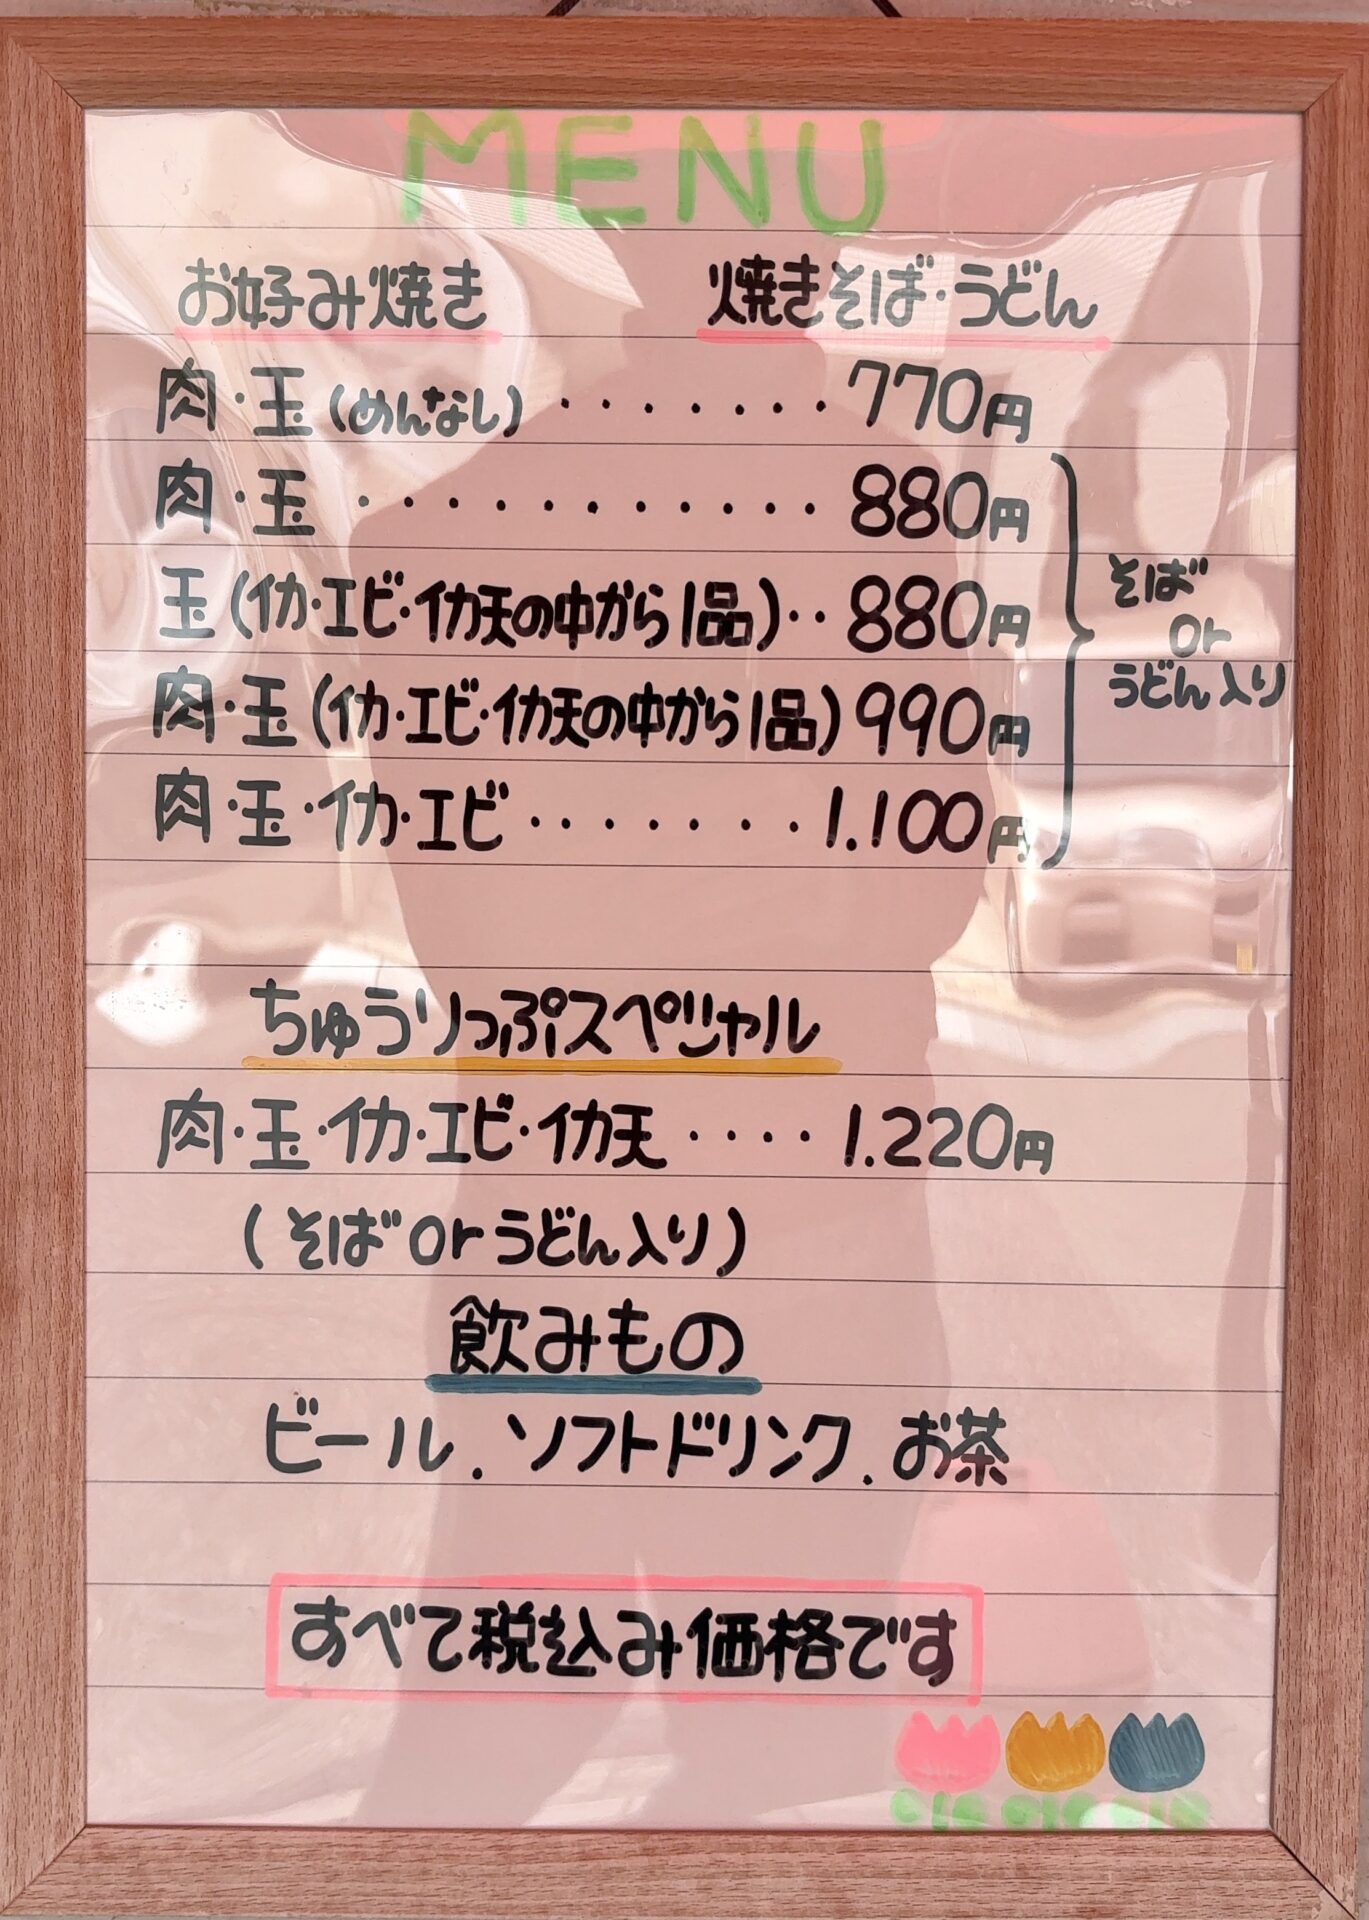 MENU
お好み焼き 焼きそば・うどん
肉・玉(めんなし)・・・・・・・770円
肉・玉・・・・・・・・・・・・880円
玉(イカ・エビ・イカ天の中から1品)・・880円
肉・玉(イカ・エビ・イカ天の中から1品)990円
肉・玉・イカ・エビ・・・・・・・1.100円
そば
or
うどん入り
ちゅうりっぷスペシャル
肉・玉・イカ・エビ・イカ天・・・・1.220円
(そばorうどん入り)
飲みもの
ビール.ソフトドリンク.お茶
すべて税込み価格です